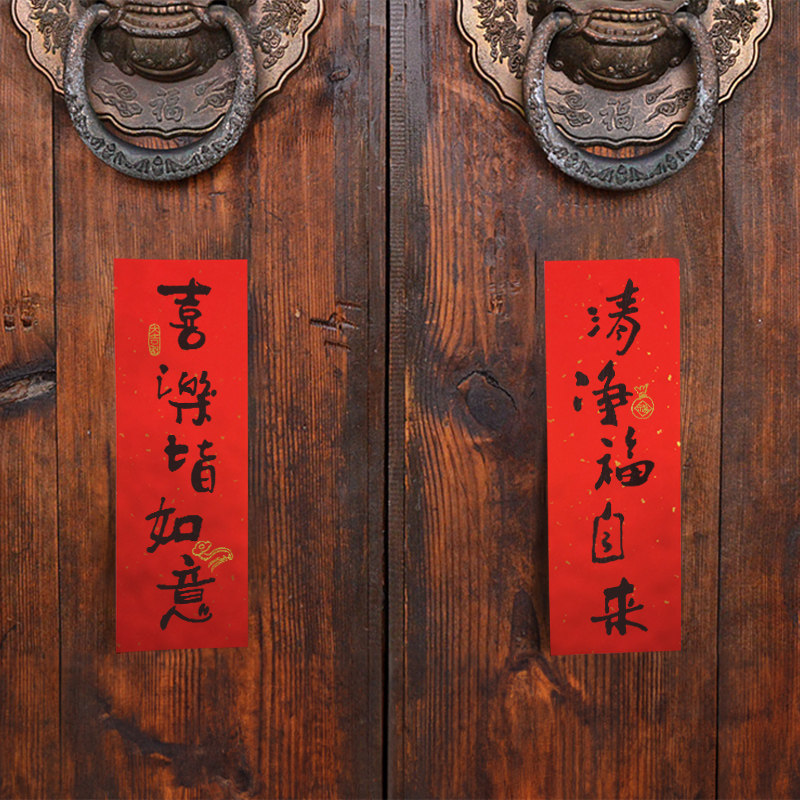 福
福
清淨福自来
喜樂皆如意